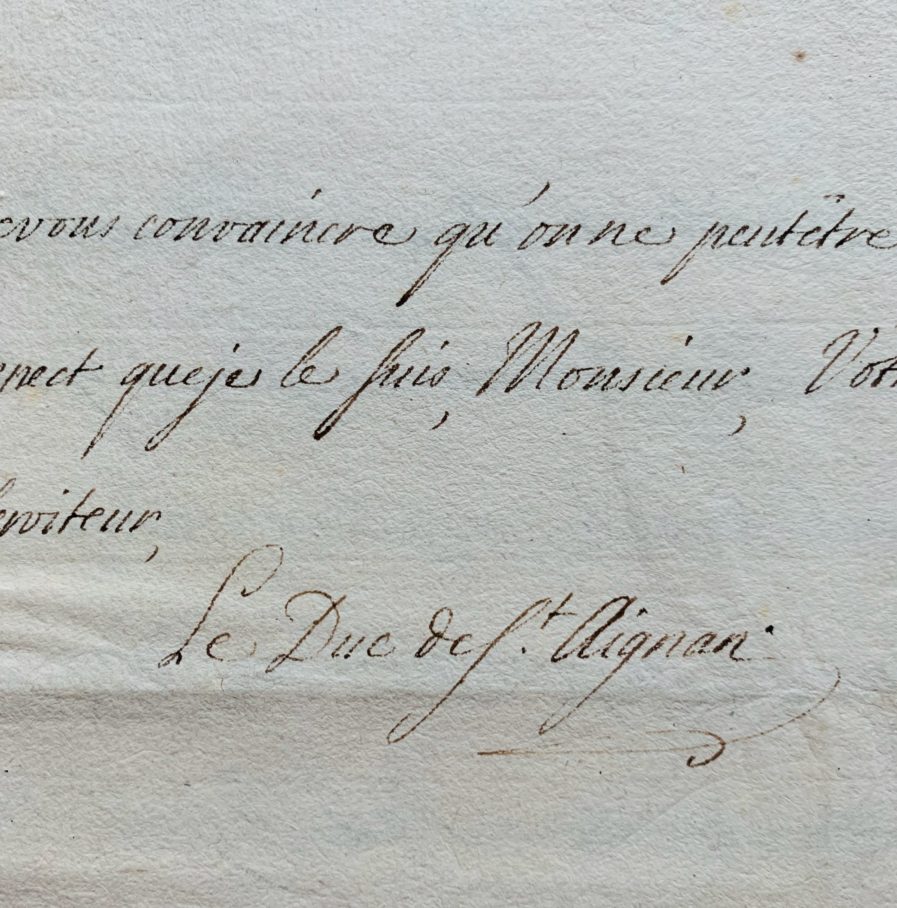 evous convaincre qu'on ne peut être
pect que je le suis, Monsieur, Vot
erviteur,
Le Duc de S.t Aignan.